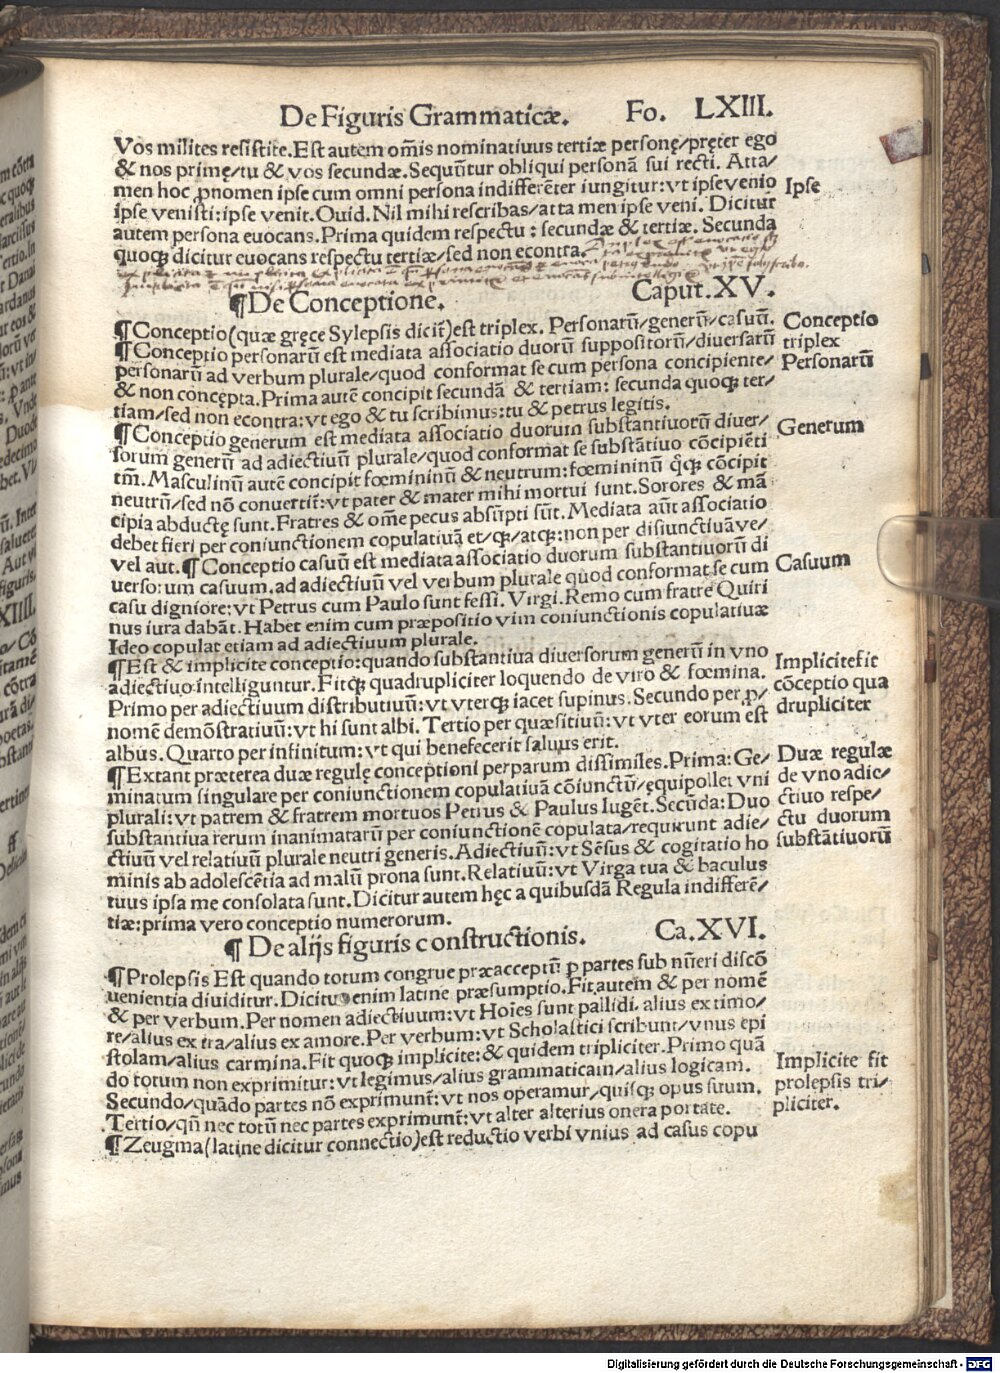 De Figuris Grammaticæ. Fo. LXIII.
Vos milites resistite. Est autem om̃is nominatiuus tertiæ personę/pręter ego
& nos primę/tu & vos secundæ. Sequũtur obliqui personã sui recti. Atta/
men hoc ꝓnomen ipse cum omni persona indifferẽter iungitur: vt ipse venio
Ipse
ipse venisti: ipse venit. Ouid. Nil mihi rescribas/atta men ipse veni. Dicitur
autem persona euocans. Prima quidem respectu: secundæ & tertiæ. Secunda
quoqꝫ dicitur euocans respectu tertiæ/sed non econtra.
¶ De Conceptione. Caput. XV.
¶ Conceptio (quæ gręce Sylepsis dicit̃) est triplex. Personarũ/generũ/casuũ.
Conceptio
triplex
¶ Conceptio personarũ est mediata associatio duorũ suppositorũ/diuersarũ
personarum ad verbum plurale/quod conformat se cum persona concipiente/
Personarũ
& non concępta. Prima autẽ concipit secundã & tertiam: secunda quoqꝫ ter/
tiam/sed non econtra: vt ego & tu scribimus: tu & petrus legitis.
¶ Conceptio generum est mediata associatio duorum substantiuorũ diuer/
Generum
sorum generũ ad adiectiuũ plurale/quod conformat se substãtiuo cõcipiẽti
tm̃. Masculinũ autẽ concipit fœmininũ & neutrum: fœmininũ q̃qꝫ cõcipit
neutrũ/sed nõ conuertit̃: vt pater & mater mihi mortui sunt. Sorores & mã
cipia abductę sunt. Fratres & om̃e pecus absũpti sũt. Mediata aũt associatio
debet fieri per coniunctionem copulatiuã et/qꝫ/atqꝫ: non per disiunctiuã ve/
vel aut. ¶ Conceptio casuũ est mediata associatio duorum substantiuorũ di
Casuum
uersorum casuum, ad adiectiuũ vel verbum plurale quod conformat se cum
casu digniore: vt Petrus cum Paulo sunt fessi. Virgi. Remo cum fratre Quiri
nus iura dabãt. Habet enim cum præpositio vim coniunctionis copulatiuæ
Ideo copulat etiam ad adiectiuum plurale.
¶ Est & implicite conceptio: quando substantiua diuersorum generũ in vno
Implicite fit
cõceptio qua
drupliciter
adiectiuo intelliguntur. Fitqꝫ quadrupliciter loquendo de viro & fœmina.
Primo per adiectiuum distributiuũ: vt vterqꝫ iacet supinus. Secundo per ꝓ/
nomẽ demõstratiuũ: vt hi sunt albi. Tertio per quæsitiuũ: vt vter eorum est
albus. Quarto per infinitum: vt qui benefecerit saluus erit.
¶ Extant præterea duæ regulę conceptioni perparum dissimiles. Prima: Ge/
Duæ regulæ
de vno adie/
ctiuo respe/
ctu duorum
substãtiuorũ
minatum singulare per coniunctionem copulatiuã cõiunctũ/ęquipollet vni
plurali: vt patrem & fratrem mortuos Petrus & Paulus lugẽt. Secũda: Duo
substantiua rerum inanimatarũ per coniunctionẽ copulata/requirunt adie/
ctiuũ vel relatiuũ plurale neutri generis. Adiectiuũ: vt Sẽsus & cogitatio ho
minis ab adolescẽtia ad malũ prona sunt. Relatiuũ: vt Virga tua & baculus
tuus ipsa me consolata sunt. Dicitur autem hęc a quibusdã Regula indifferẽ/
tiæ: prima vero conceptio numerorum.
¶ De alijs figuris constructionis. Ca. XVI.
¶ Prolepsis Est quando totum congrue præacceptũ ꝑ partes sub nũeri discõ
uenientia diuiditur. Dicitur enim latine præsumptio. Fit autem & per nomẽ
& per verbum. Per nomen adiectiuum: vt Hoĩes sunt pallidi, alius ex timo/
re/alius ex ira/alius ex amore. Per verbum: vt Scholastici scribunt/vnus epi
stolam/alius carmina. Fit quoqꝫ implicite: & quidem tripliciter. Primo quã
Implicite fit
prolepsis tri/
pliciter.
do totum non exprimitur: vt legimus/alius grammaticam/alius logicam.
Secundo/quãdo partes nõ exprimunt̃: vt nos operamur/quisqꝫ opus suum.
Tertio/qñ nec totũ nec partes exprimunt̃: vt alter alterius onera portate.
¶ Zeugma (latine dicitur connectio) est reductio verbi vnius ad casus copu
Digitalisierung gefördert durch die Deutsche Forschungsgemeinschaft - DFG